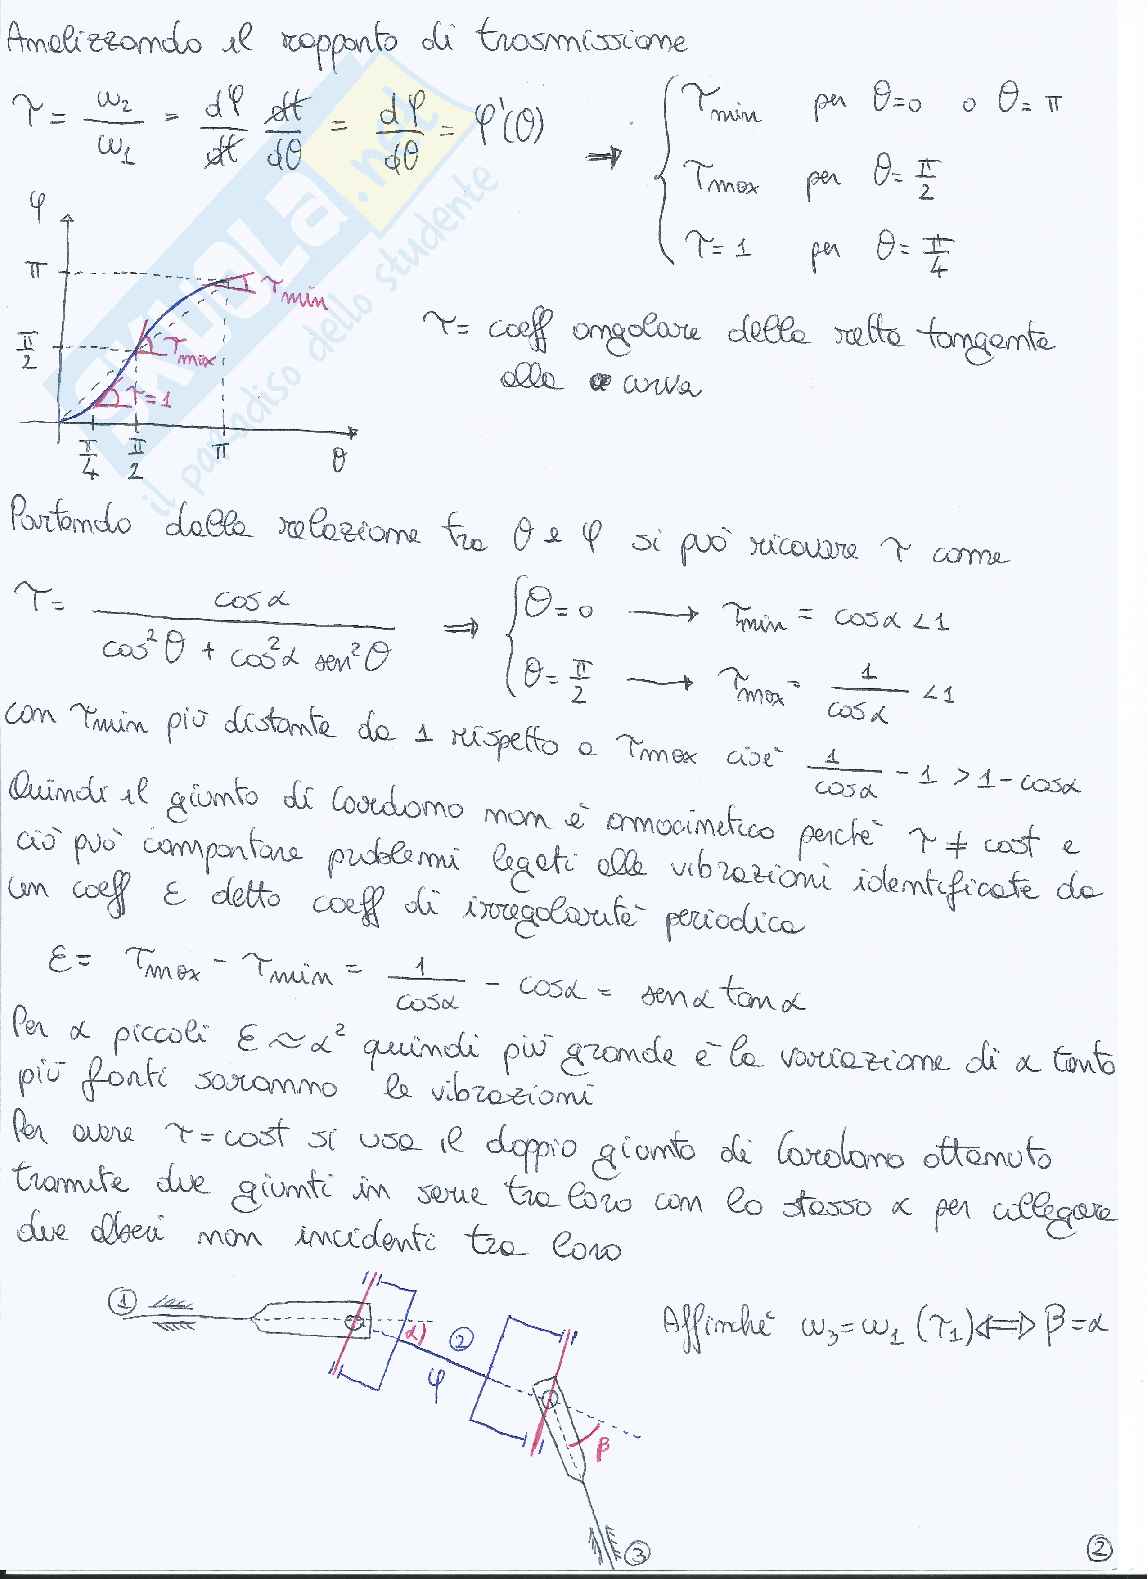 Analizzando il rapporto di trasmissione
τ = ω₂/ω₁ = dφ/dt dt/dθ = dφ/dθ = φ'(θ) ⇒ { τmin per θ=0 o θ=π
τmax per θ=π/2
τ=1 per θ=π/4
φ
π
π/2
τmin
τmax
τ=1
π/4 π/2 π θ
τ= coeff angolare della retta tangente
alla curva
SKUOLA.net
il paradiso dello studente
Partendo dalla relazione tra θ e φ si può ricavare τ come
τ = cosα / (cos²θ + cos²α sen²θ) ⇒ { θ=0 → τmin = cosα < 1
θ=π/2 → τmax = 1/cosα < 1
con τmin più distante da 1 rispetto a τmax cioè 1/cosα - 1 > 1 - cosα
Quindi il giunto di Cardano non è omocinetico perchè τ ≠ cost e
ciò può comportare problemi legati alle vibrazioni identificate da
un coeff ε detto coeff di irregolarità periodica
ε = τmax - τmin = 1/cosα - cosα = senα tanα
Per α piccoli ε ≈ α² quindi più grande è la variazione di α tanto
più forti saranno le vibrazioni
Per avere τ = cost si usa il doppio giunto di Cardano ottenuto
tramite due giunti in serie tra loro con lo stesso α per collegare
due alberi non incidenti tra loro
1
α
2
φ
β
3
Affinchè ω₃=ω₁ (τ₁) ⇔ β=α
2